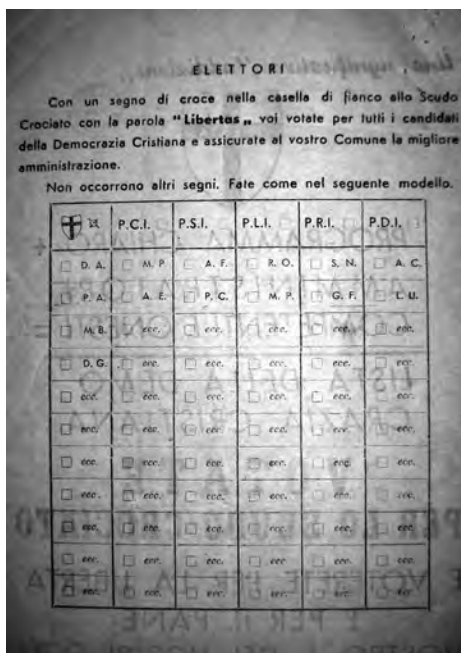 ELETTORI
Con un segno di croce nella casella di fianco allo Scudo
Crociato con la parola "Libertas„ voi votate per tutti i candidati
della Democrazia Cristiana e assicurate al vostro Comune la migliore
amministrazione.
Non occorrono altri segni. Fate come nel seguente modello.
P.C.I. P.S.I. P.L.I. P.R.I. P.D.I.
D. A. M. P. A. F. R. O. S. N. A. C.
P. A. A. E. P. C. M. P. G. F. L. U.
M. B. ecc. ecc. ecc. ecc. ecc.
D. G. ecc. ecc. ecc. ecc. ecc.
ecc. ecc. ecc. ecc. ecc. ecc.
ecc. ecc. ecc. ecc. ecc. ecc.
ecc. ecc. ecc. ecc. ecc. ecc.
ecc. ecc. ecc. ecc. ecc. ecc.
ecc. ecc. ecc. ecc. ecc. ecc.
ecc. ecc. ecc. ecc. ecc. ecc.
ecc. ecc. ecc. ecc. ecc. ecc.